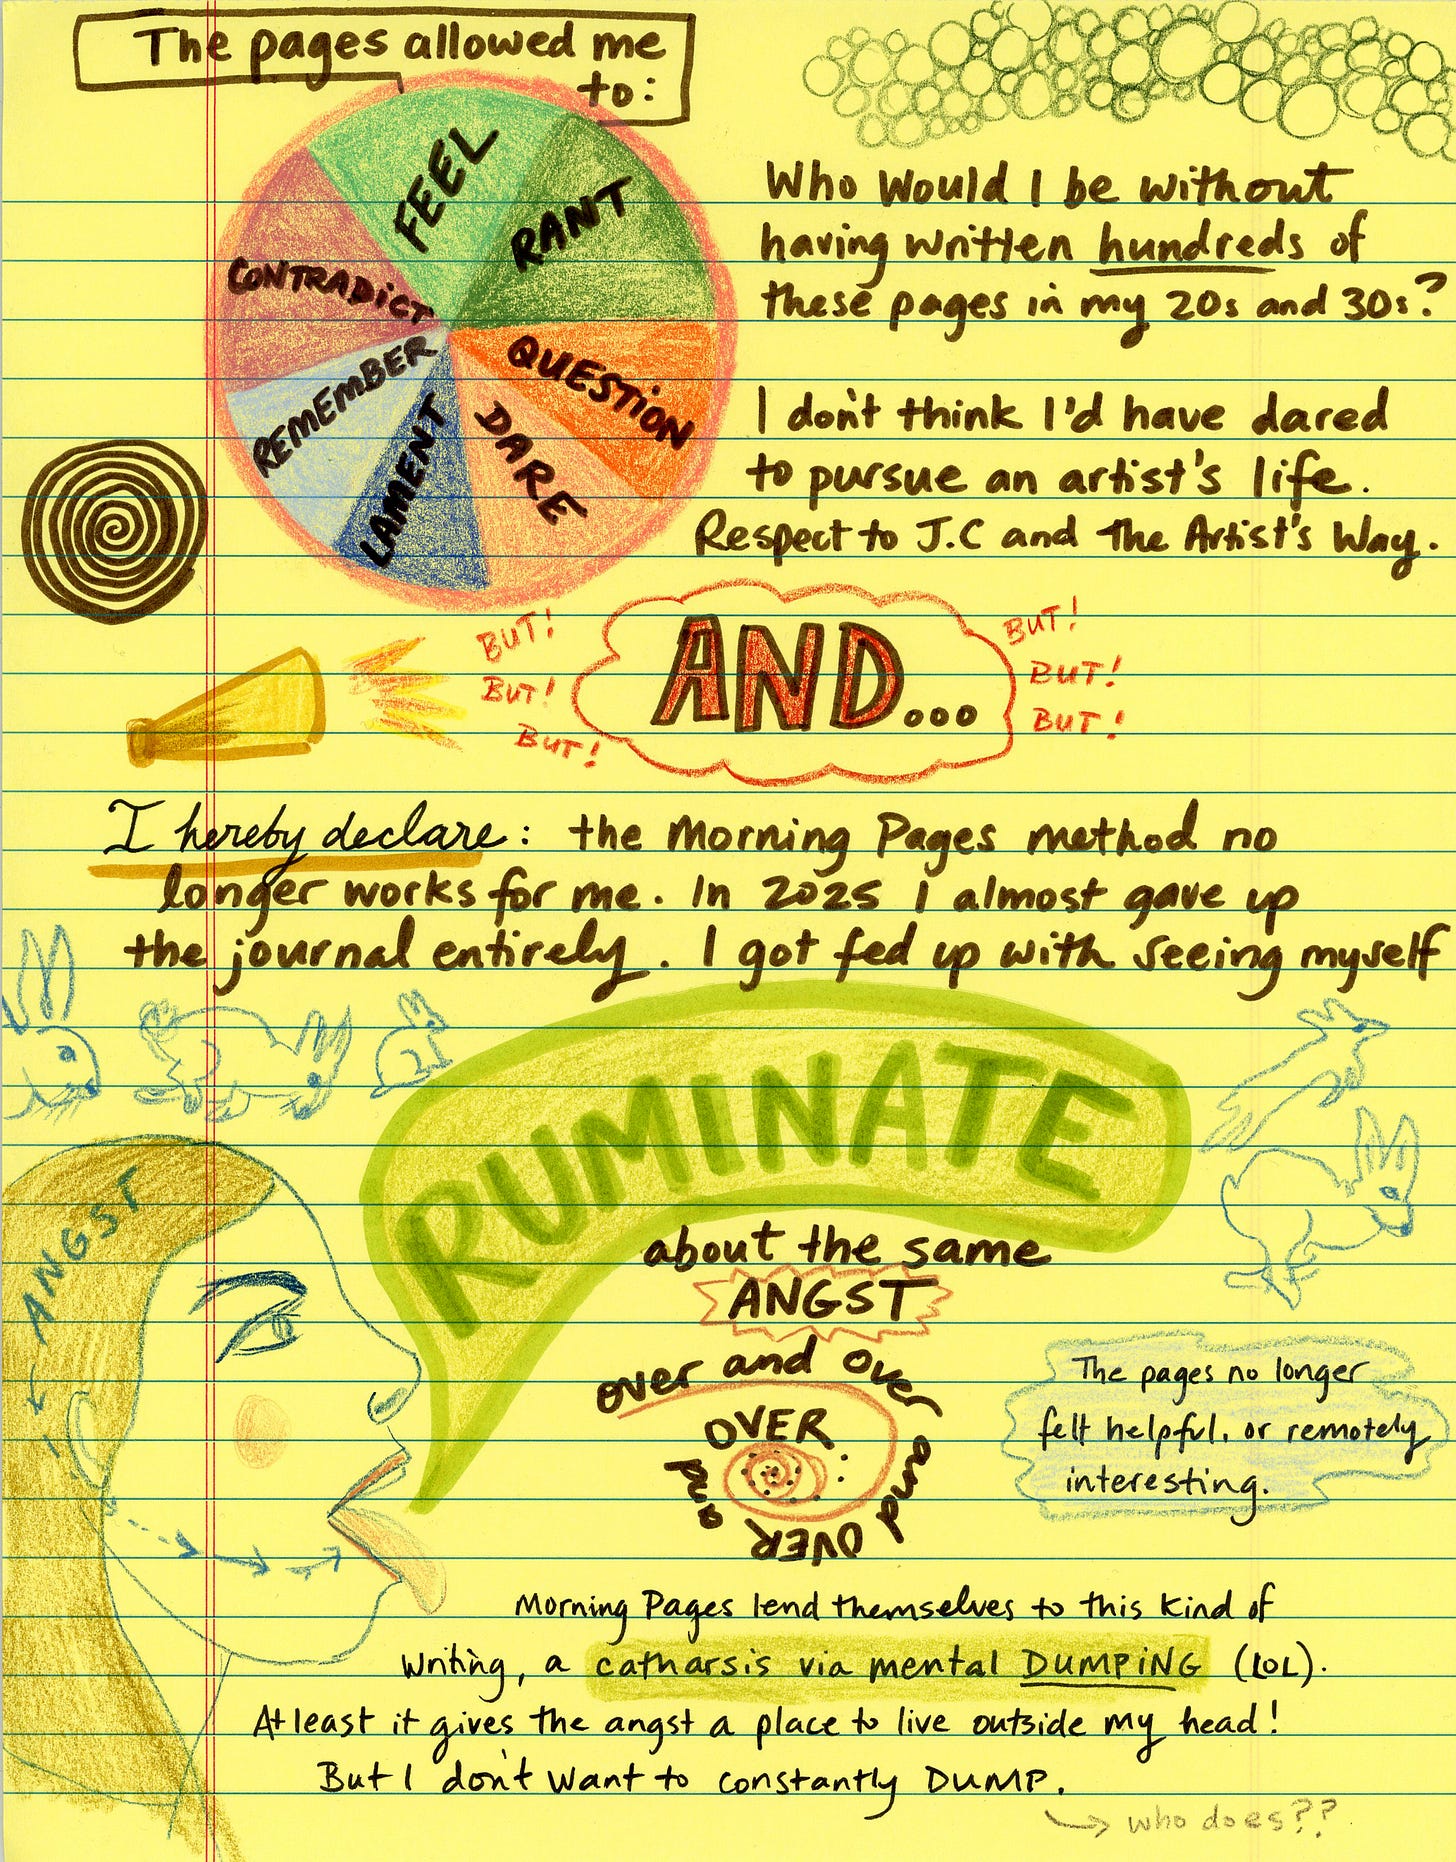 The pages allowed me
to:
FEEL
RANT
QUESTION
DARE
LAMENT
REMEMBER
CONTRADICT
Who Would I be without
having written hundreds of
these pages in my 20s and 30s?
I don't think I'd have dared
to pursue an artist's life.
Respect to J.C and The Artist's Way.
BUT!
BUT!
BUT!
AND...
BUT!
BUT!
BUT!
I hereby declare: the Morning Pages method no
longer works for me. In 2025 I almost gave up
the journal entirely. I got fed up with seeing myself
RUMINATE
about the same
ANGST
over and over
and OVER
and
OVER
ANGST
The pages no longer
felt helpful, or remotely
interesting.
Morning Pages lend themselves to this kind of
writing, a catharsis via mental DUMPING (LOL).
At least it gives the angst a place to live outside my head!
But I don't want to constantly DUMP.
who does??